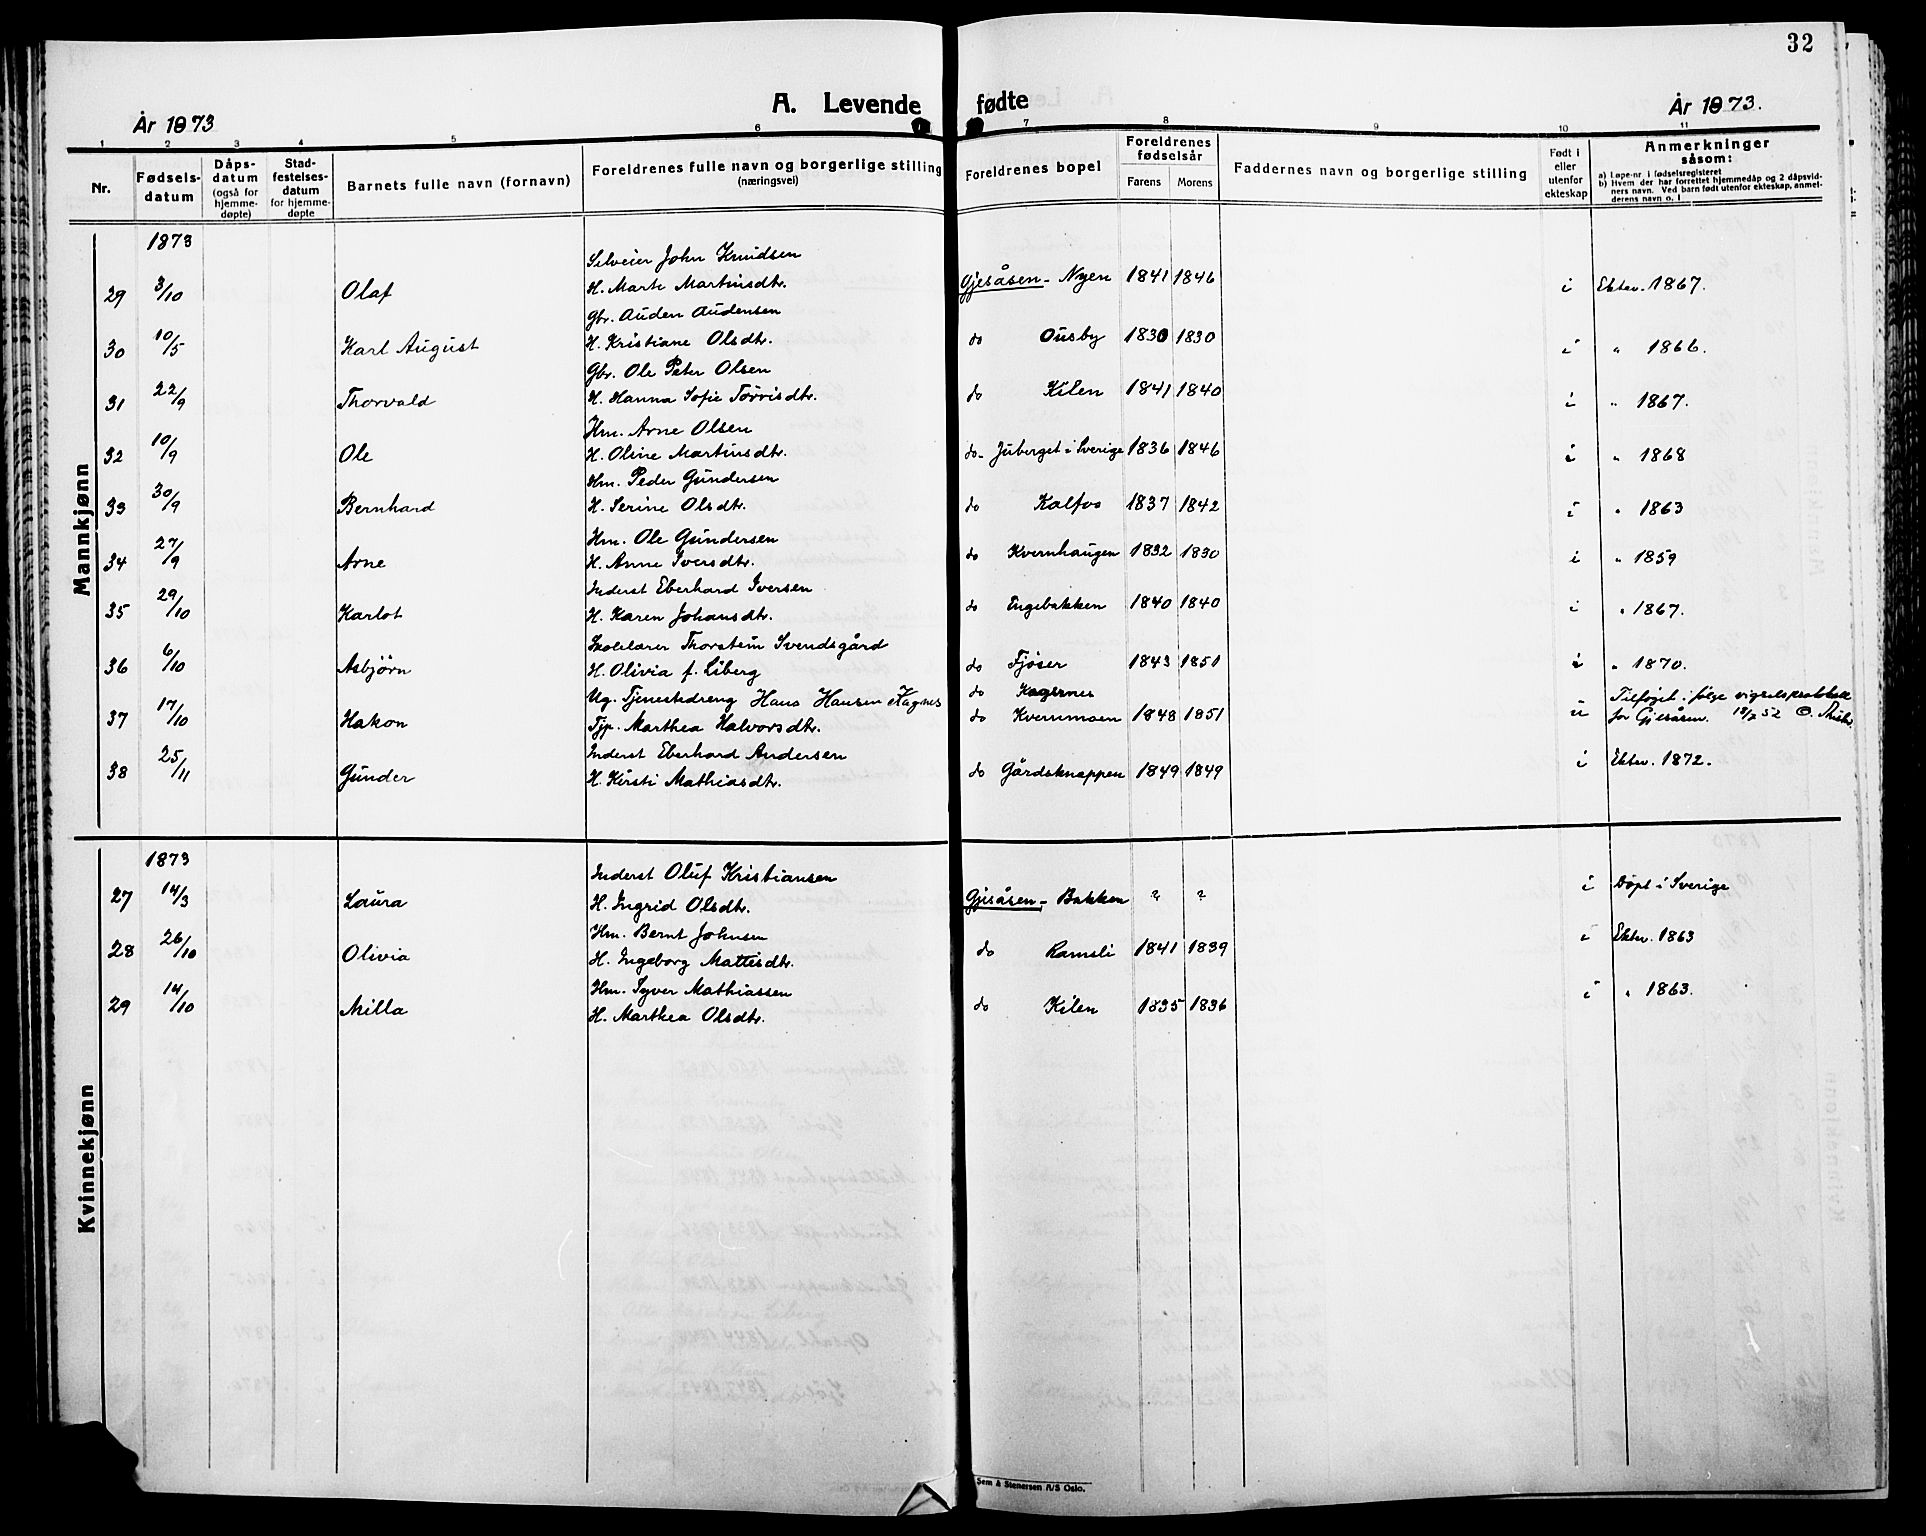 32
A. Levende fødte
År 1873
År 1873.
1 2 3 4 5 6 7 8 9 10 11
Nr.
Fødsels-
datum
Dåps-
datum
(også for
hjemme-
døpte)
Stad-
festelses-
datum
for hjemme-
døpte
Barnets fulle navn (fornavn)
Foreldrenes fulle navn og borgerlige stilling
(næringsvei)
Foreldrenes bopel
Foreldrenes
fødselsår
Farens Morens
Faddernes navn og borgerlige stilling
Født i
eller
utenfor
ekteskap
Anmerkninger
såsom:
a) Løpe-nr. i fødselsregisteret
b) Hvem der har forrettet hjemmedåp og 2 dåpsvid-
ners navn. Ved barn født utenfor ekteskap, anmel-
derens navn o. l
Mannkjønn
1873
Selveier John Knudsen
29 3/10 Olaf H. Marte Martinsdtr. Gjesåsen - Nyen 1841 1846 i Ektev. 1867.
Gbr. Auden Audensen
30 10/5 Karl August H. Kristiane Olsdtr. do Ousby 1830 1830 i " 1866.
Gbr. Ole Peter Olsen
31 22/9 Thorvald H. Hanna Sofie Torrisdtr. do Kilen 1841 1840 i " 1867.
Hm. Arne Olsen
32 10/9 Ole H. Oline Martinsdtr. do - Juberget i Sverige 1836 1846 i " 1868
Hm. Peder Gundersen
33 30/9 Bernhard H. Serine Olsdtr. do Kalfos 1837 1842 i " 1863
Hm. Ole Gundersen
34 27/9 Arne H. Anne Iversdtr. do Kvernhaugen 1832 1830 i " 1859
Inderst Eberhard Iversen
35 29/10 Karlot H. Karen Johansdtr. do Engebakken 1840 1840 i " 1867.
Skolelærer Thorstein Svendsgård
36 6/10 Asbjørn H. Olivia f. Liberg do Fjøser 1843 1851 i " 1870.
Ug. Tjenestedreng Hans Hansen Kagnes do Kagernes Tilføyet i følge vigselsprotokoll
37 17/10 Hakon Tjp. Marthea Halvorsdtr. do Kvernmoen 1848 1851 u for Gjesåsen. 18/2 52
Inderst Eberhard Andersen
38 25/11 Gunder H. Kirsti Mathiasdtr. do Gårdsknappen 1849 1849 i Ektev. 1872.
Kvinnekjønn
1873
Inderst Oluf Kristiansen
27 14/3 Laura H. Ingrid Olsdtr. Gjesåsen - Bakken ? ? i Døpt i Sverige
Hm. Bernt Johnsen
28 26/10 Olivia H. Ingeborg Mattisdtr. do Ramsli 1841 1839 i Ektev. 1863
Hm. Syver Mathiassen
29 14/10 Milla H. Marthea Olsdtr. do Kilen 1835 1836 i " 1863.
Sem & Stenersen A/S Oslo.